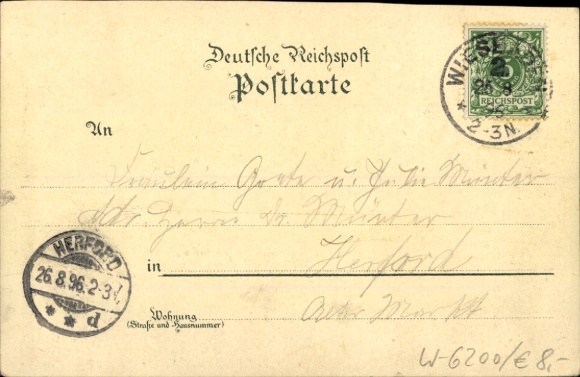 Deutsche Reichspost
Postkarte
WIESBADEN
2.
26 8
96
2-3N.
REICHSPOST
An
Fräulein Grete u. Julie Münter
Adr. Herrn Dr. Münter
in Herford
Alter Markt.
HERFORD
26.8.96.2-3N.
* * p
Wohnung
(Straße und Hausnummer)
W-6200/€ 8,-